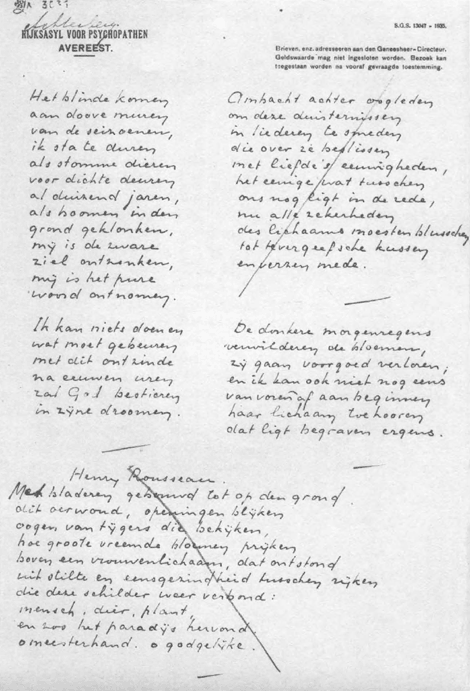 Achterberg
RIJKSASYL VOOR PSYCHOPATHEN
AVEREEST.
S.G.S. 13047 - 1935.
Brieven, enz. adresseeren aan den Geneesheer-Directeur.
Geldswaarde mag niet ingesloten worden. Bezoek kan
toegestaan worden na vooraf gevraagde toestemming.
Het blinde komen
aan doove muren
van de seizoenen,
ik sta te duren
als stomme dieren
voor dichte deuren
al duizend jaren,
als boomen in den
grond geklonken,
mij is de zware
ziel ontzonken,
mij is het pure
woord ontnomen.
Ik kan niets doen en
wat moet gebeuren
met dit ontzinde
na eeuwen uren
zal God bestieren
in zijne droomen.
Ambacht achter oogleden
om deze duisternissen
in liederen te smeden
die over ze beslissen
met liefde's eeuwigheden,
het eenige wat tusschen
ons nog ligt in de rede,
nu alle zekerheden
des lichaams moesten blusschen
tot tevergeefsche kussen
en verzen mede.
De donkere morgenregens
verwilderen de bloemen,
zij gaan voorgoed verloren;
en ik kan ook niet nog eens
van voren af aan beginnen
haar lichaam toehooren
dat ligt begraven ergens.
Henry Rousseau.
Met bladeren gebouwd tot op den grond
dit oerwoud, openingen blijken
oogen van tijgers die bekijken,
hoe groote vreemde bloemen prijken
boven een vrouwenlichaam, dat ontstond
uit stilte en eensgezindheid tusschen rijken
die deze schilder weer verbond:
mensch, dier, plant,
en zoo het paradijs hervond.
o meesterhand. o godgelijke.